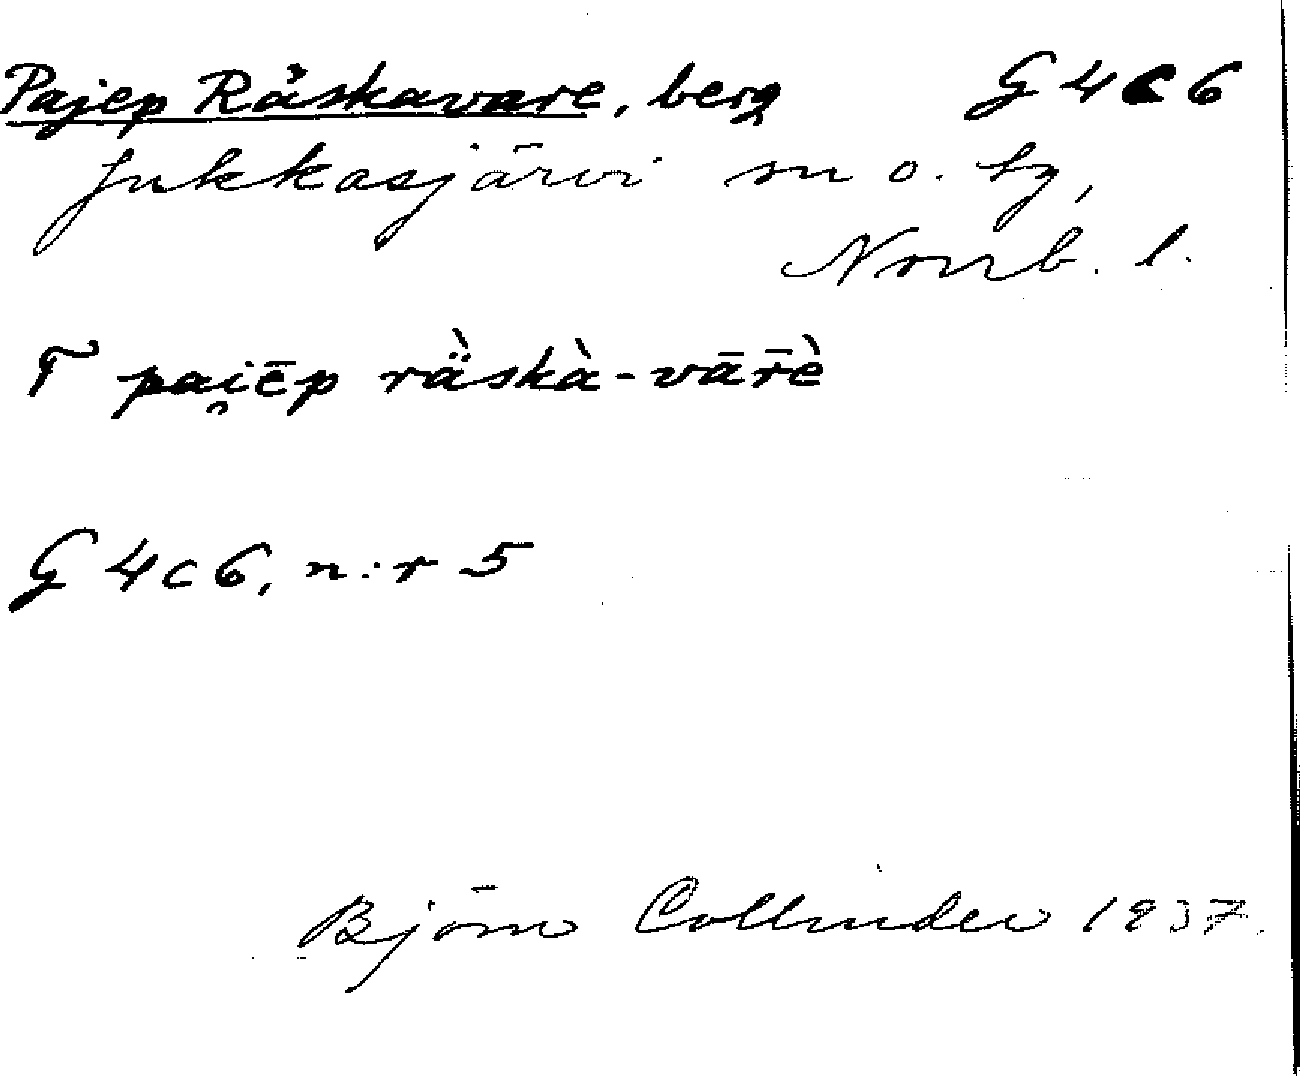 Pajep Räskavare, berg G4c6
Jukkasjärvi sn o. tg,
Norrb. l.
T pai̯ēp rä̀skà-vār̄è
G 4c6, n:r 5
Björn Collinder 1937.